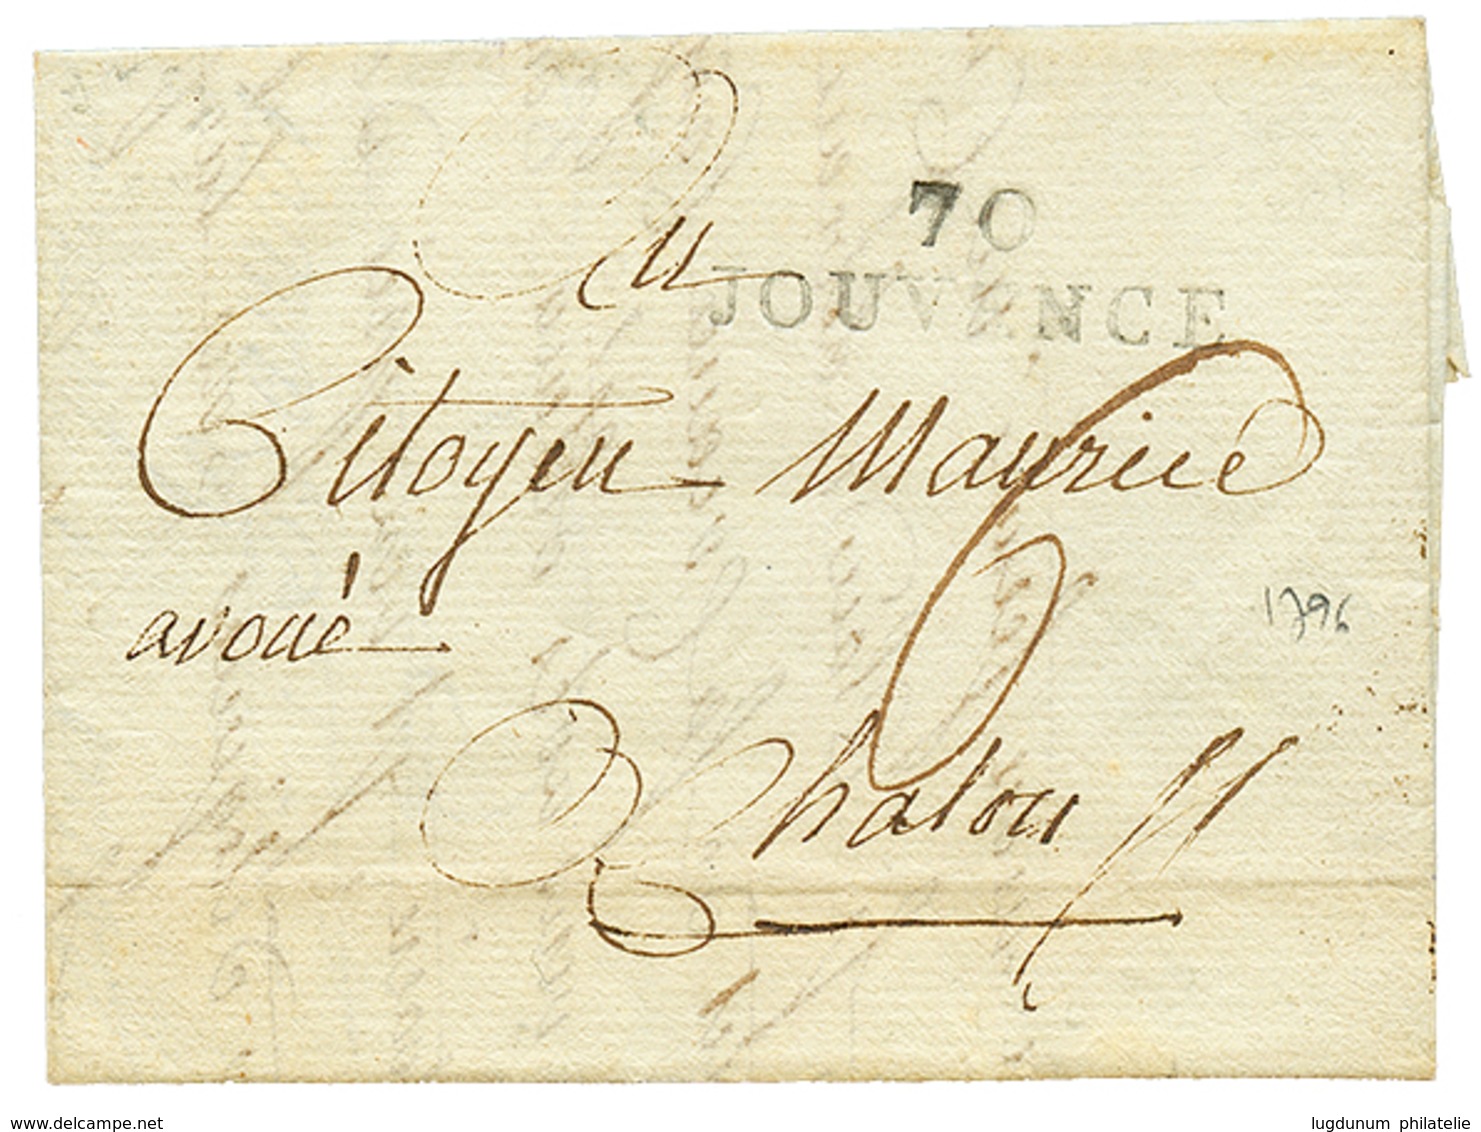 70
JOUVENCE
Au
Citoyen Maurice
avoué
1796
Chalon s/s
www.delcampe.net
lugdunum philatelie